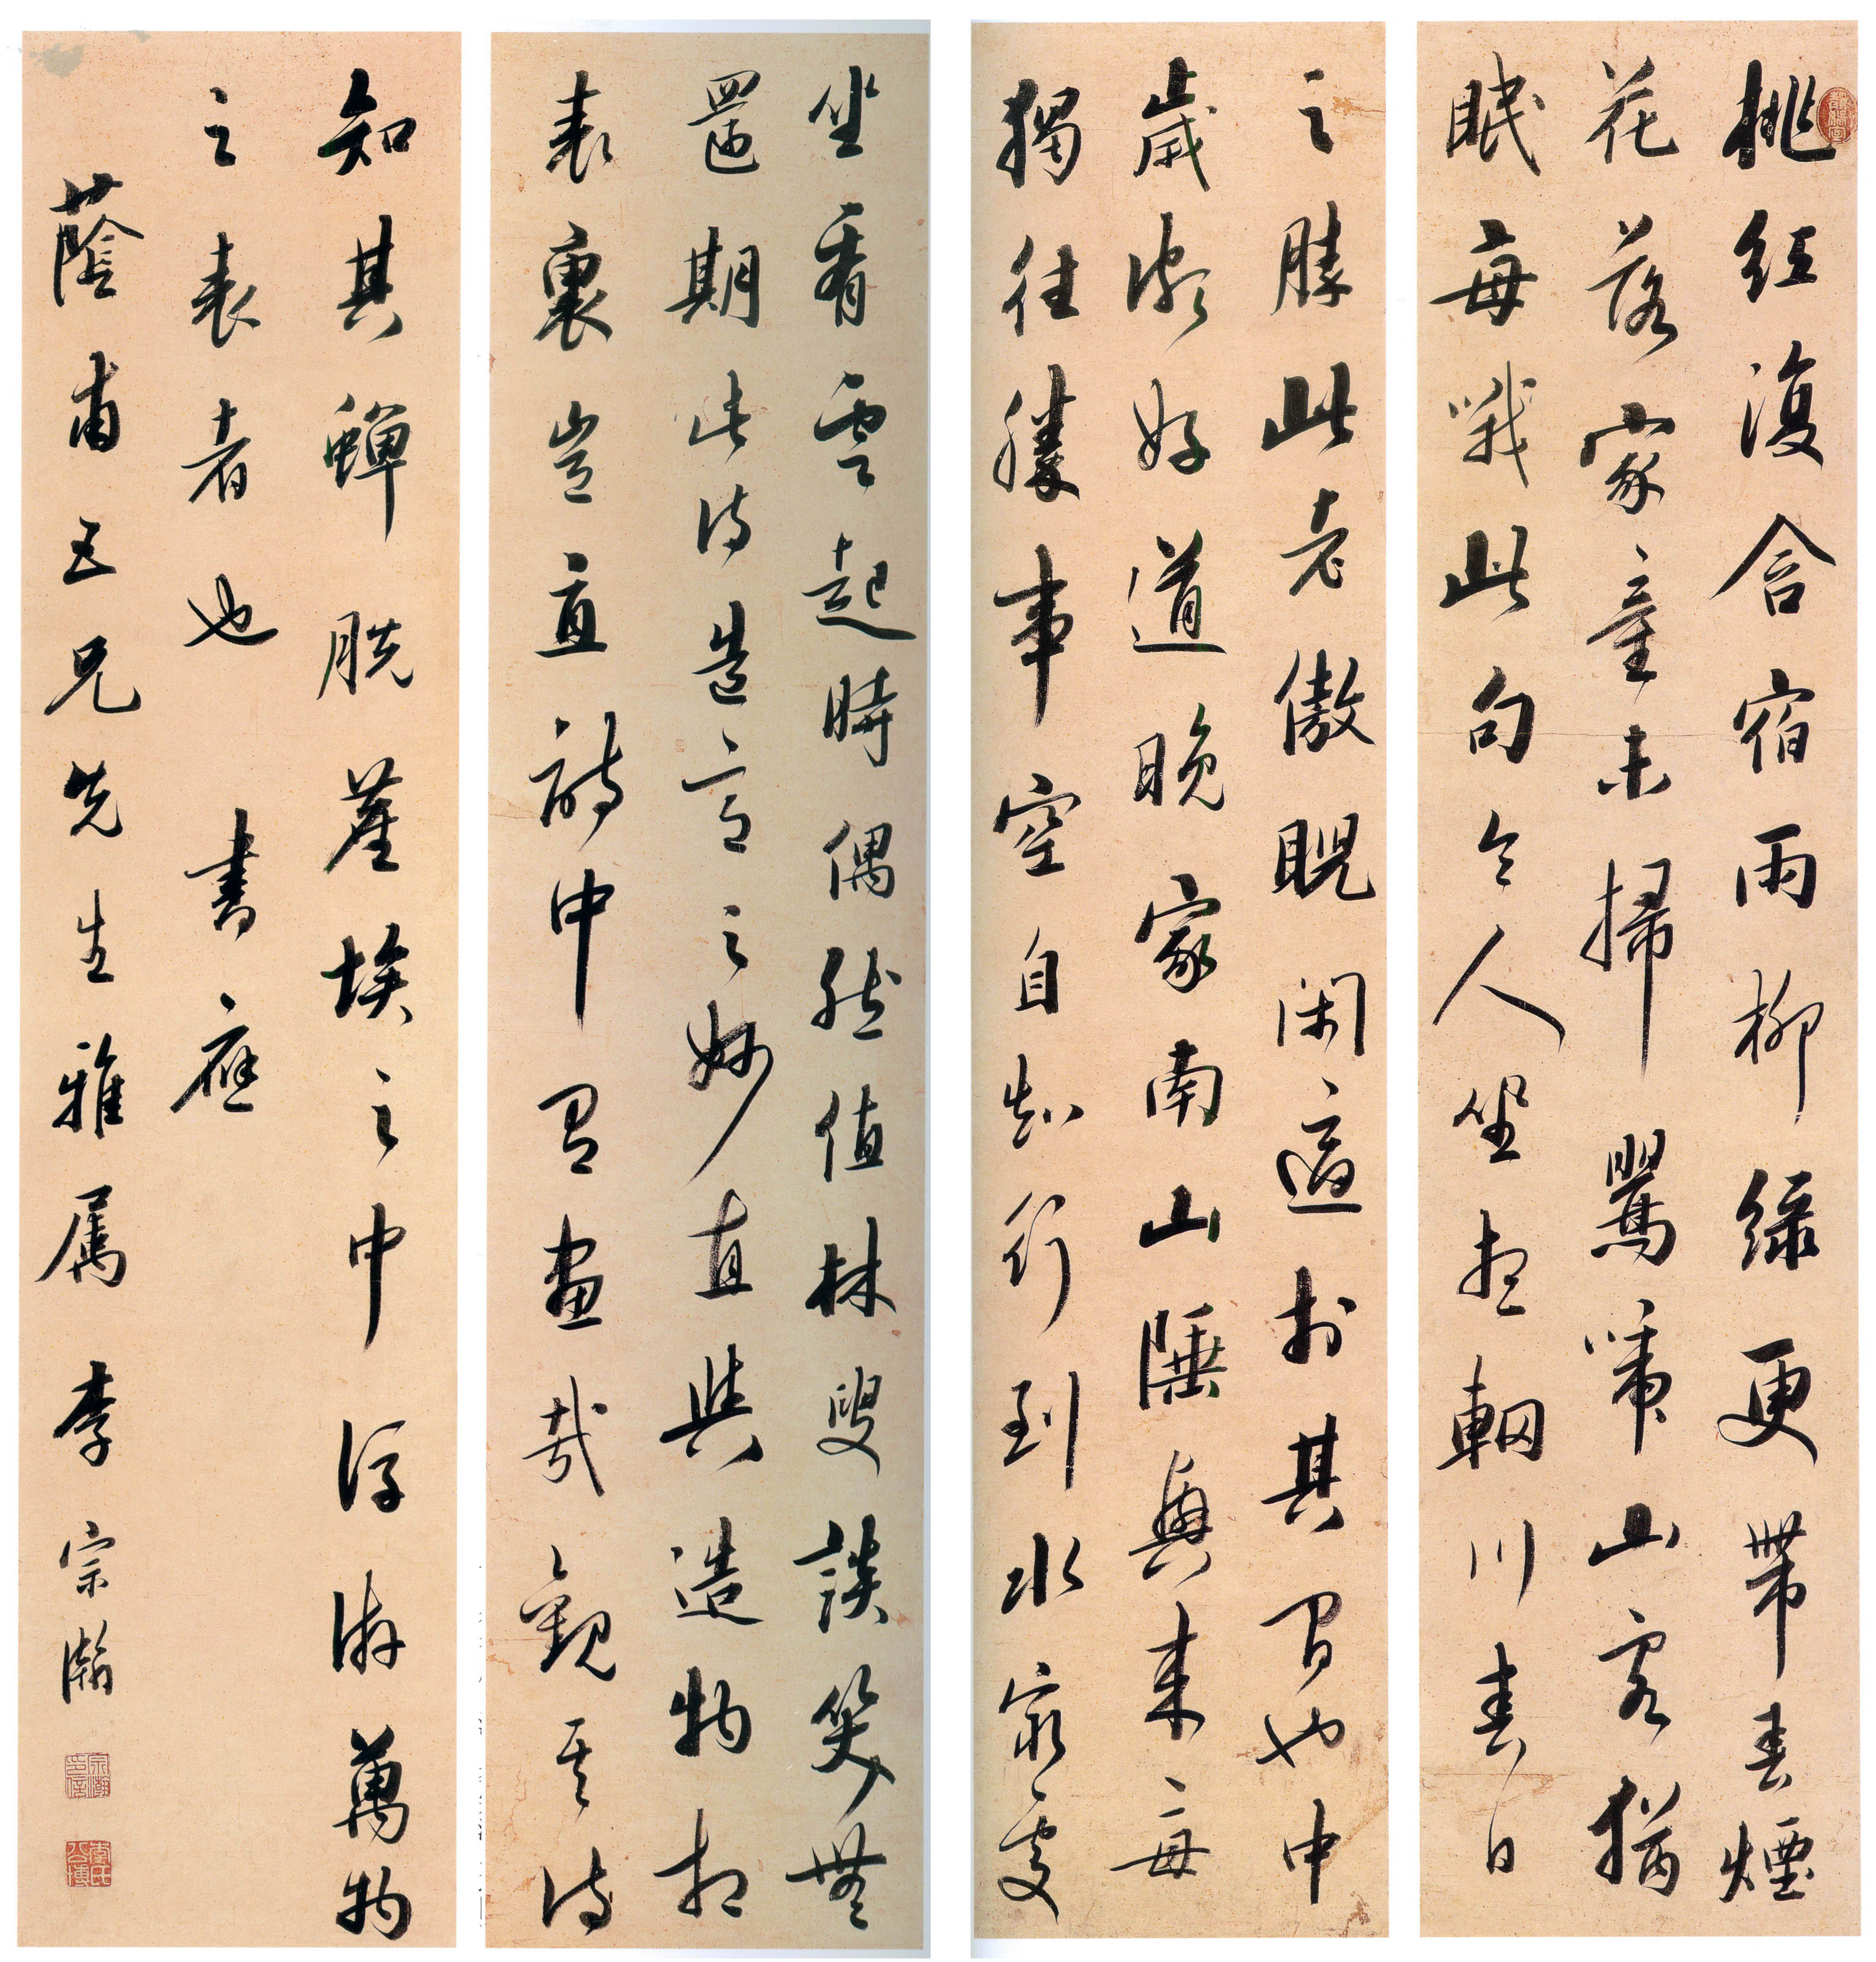 桃紅復含宿雨柳綠更帶春煙
花落家童未掃鶯啼山客猶
眠每哦此句令人坐想輞川春日
之勝此老傲睨閑適於其間也中
歲頗好道晚家南山陲興來每
獨往勝事空自知行到水窮處
坐看雲起時偶然值林叟談笑無
還期此詩造言之妙直與造物相
表裏豈直詩中有畫哉觀其詩
知其蟬脫塵埃之中浮游萬物
之表者也 書應
蔭甫五兄先生雅屬 李宗瀚
宗瀚印信
李氏公博